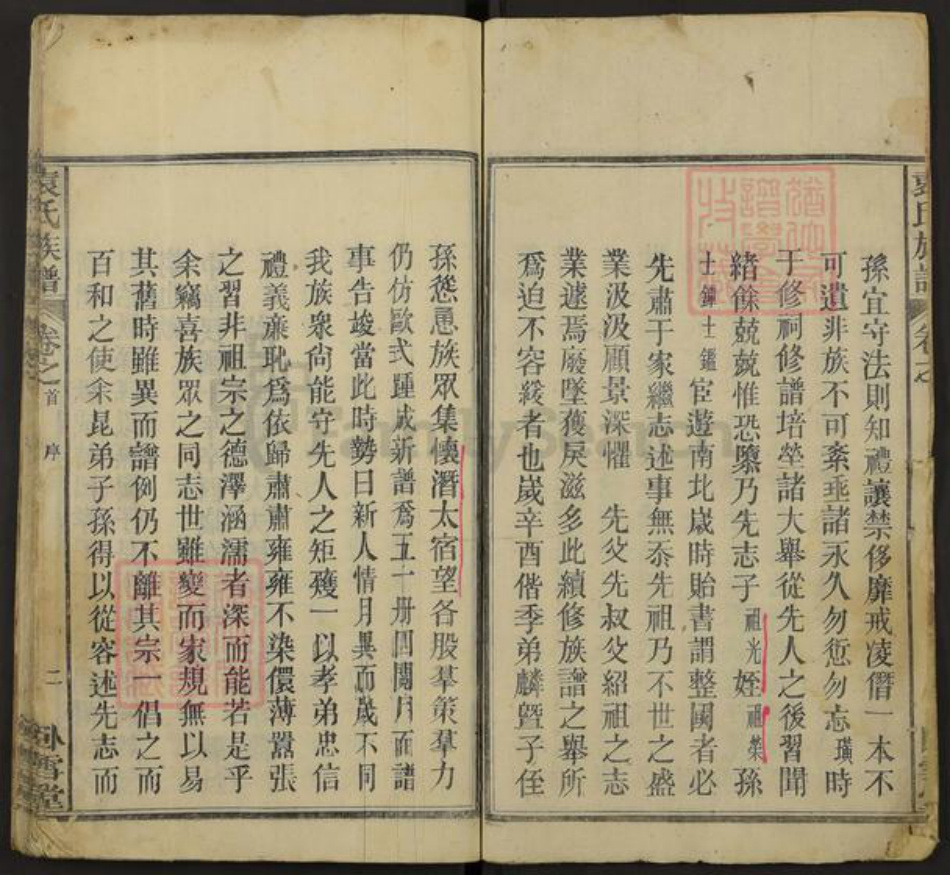 孫宜守法則知禮讓禁侈靡戒凌僭一本不
可遺非族不可紊垂諸永久勿愆勿忘璜時
于修祠修譜培塋諸大舉從先人之後習聞
緒餘兢兢惟恐隳乃先志子祖光姪祖榮孫
士鐸士鑑宦遊南北歲時貽書謂整國者必
先肅于家繼志述事無忝先祖乃不世之盛
業汲汲顧景深懼 先父先叔父紹祖之志
業遽焉廢墜獲戾滋多此續修族譜之舉所
爲迫不容緩者也歲辛酉偕季弟麟暨子侄
孫慫恿族眾集懷潛太宿望各股羣策羣力
仍仿歐式踵成新譜爲五十册四閱月而譜
事告竣當此時勢日新人情月異而歲不同
我族衆尙能守先人之矩矱一以孝弟忠信
禮義廉恥爲依歸肅肅雍雍不染儇薄囂張
之習非祖宗之德澤涵濡者深而能若是乎
余竊喜族眾之同志世雖變而家規無以易
其舊時雖異而譜例仍不離其宗一倡之而
百和之使余昆弟子孫得以從容述先志而
袁氏族譜 卷之首 序 二 臥雪堂
袁氏族譜 卷之
FamilySearch